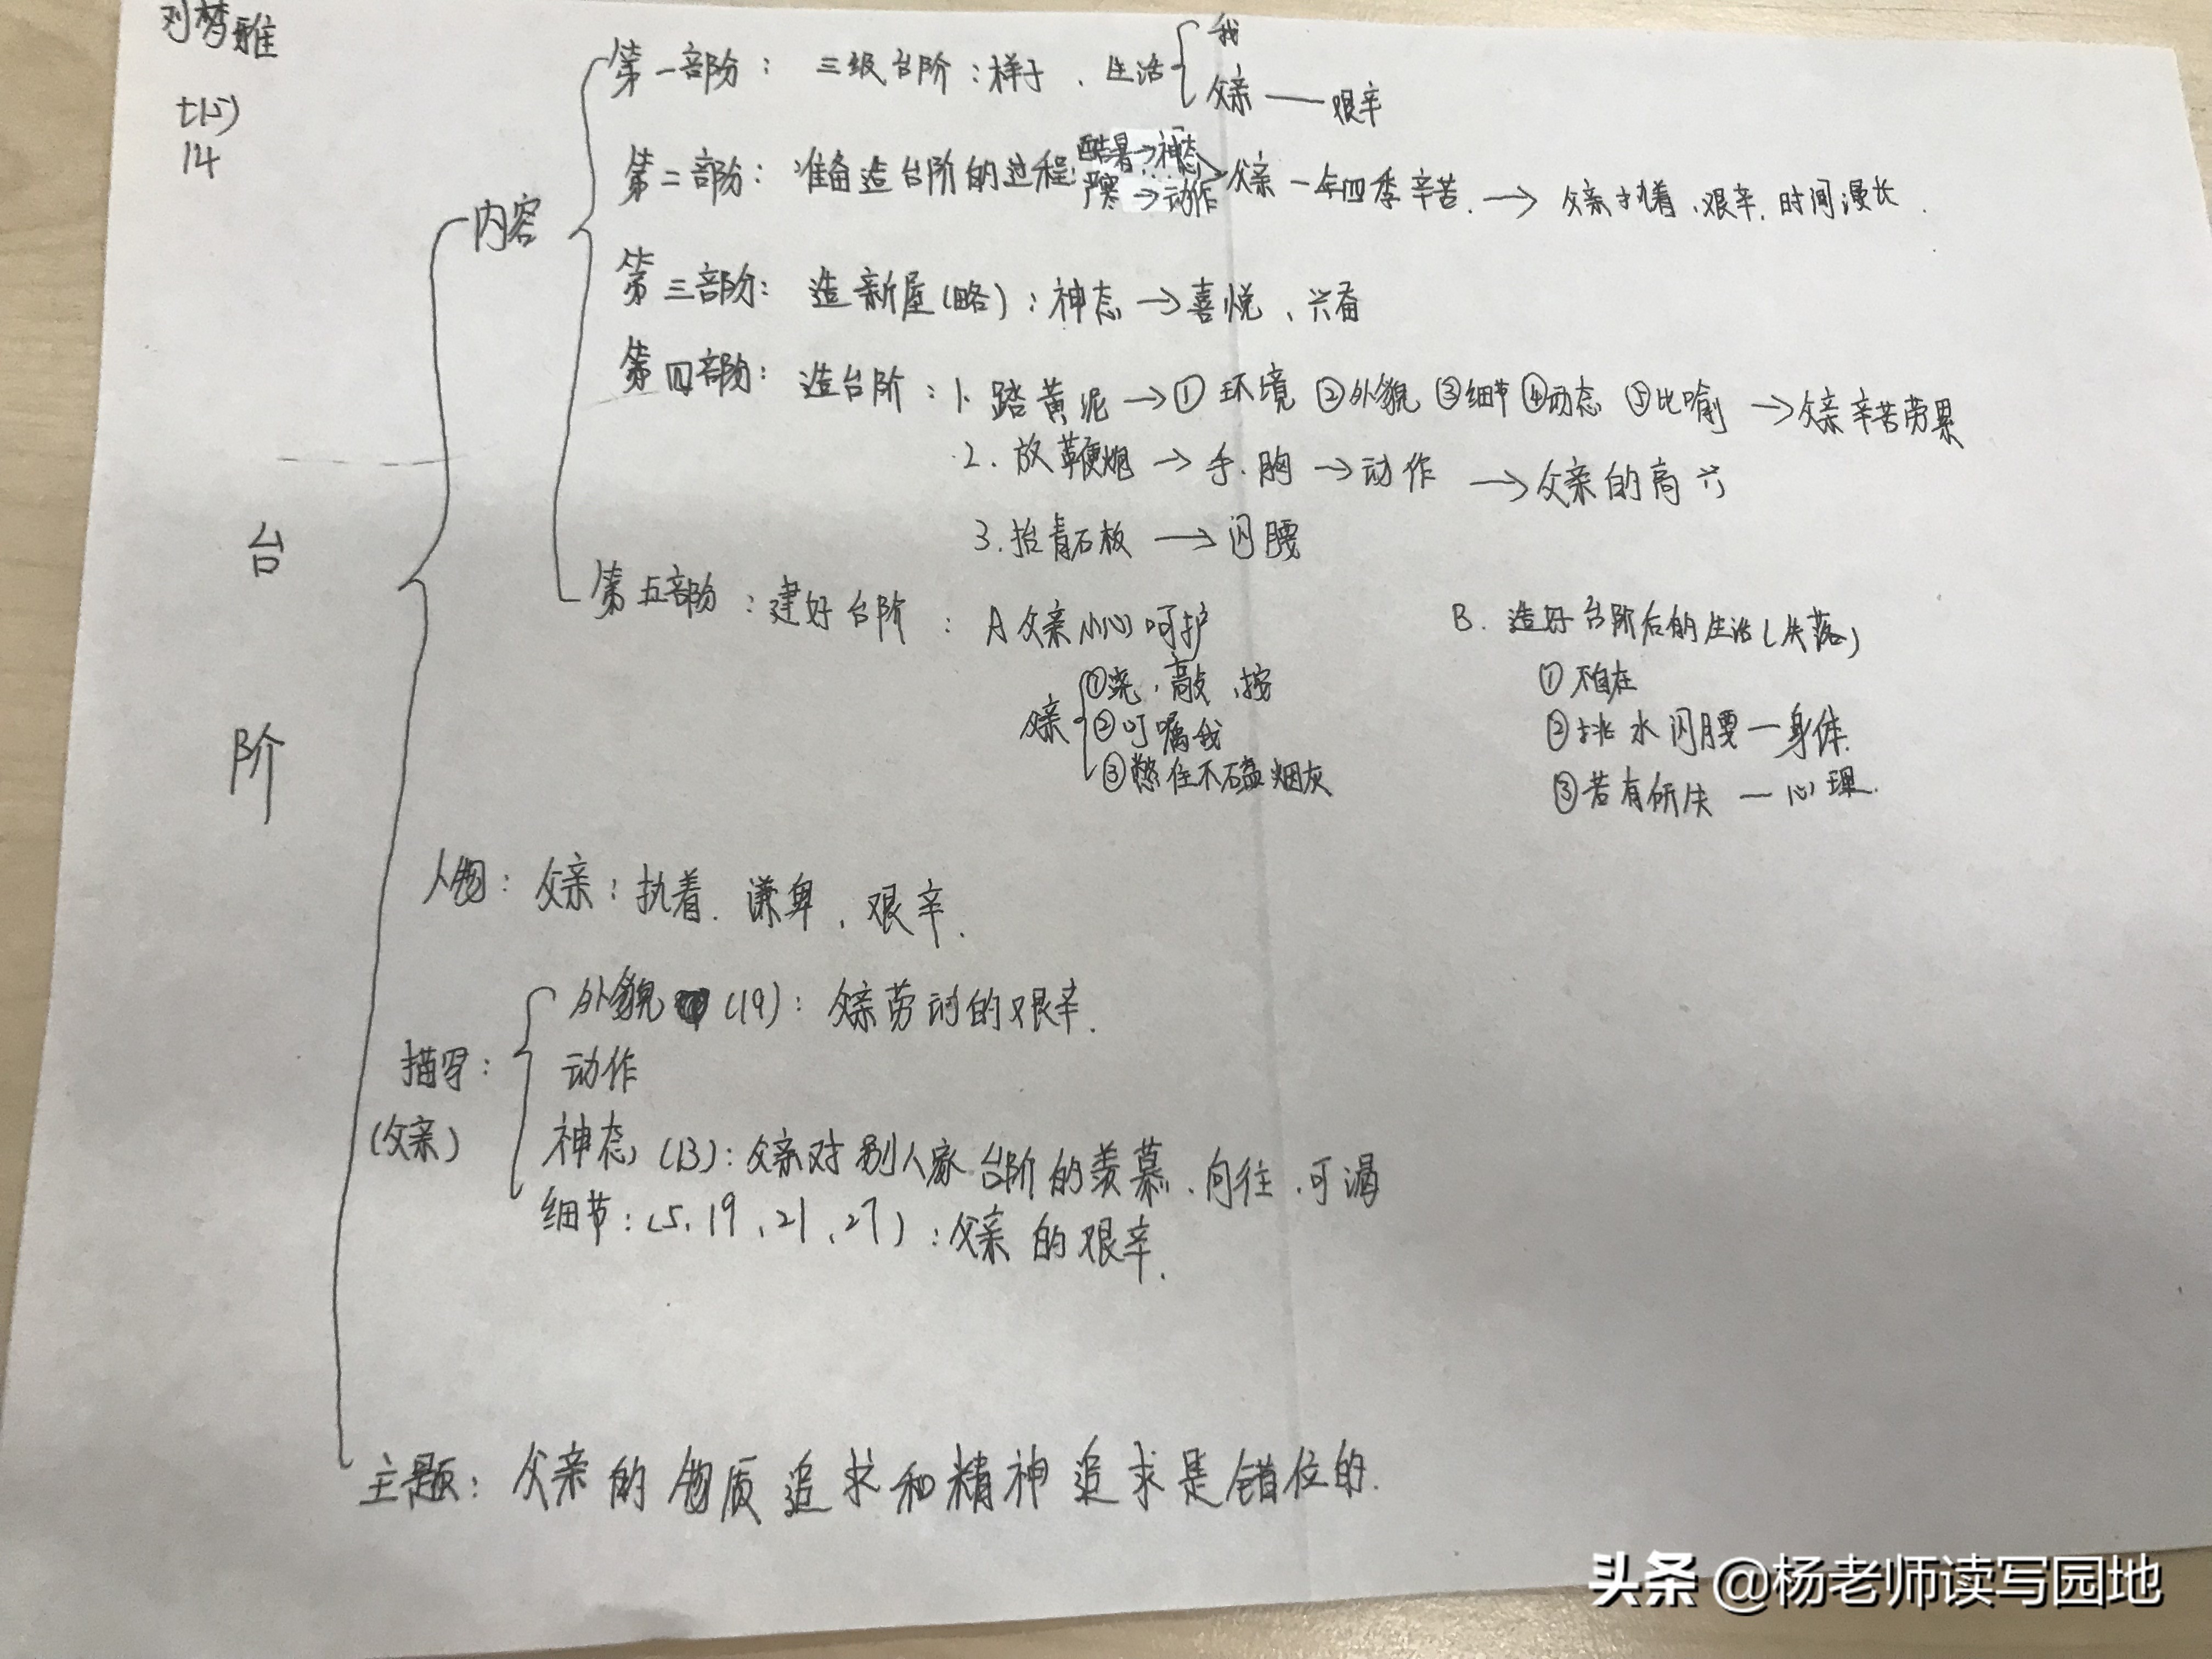 刘梦雅
七(5)
14
台阶
内容
第一部分：三级台阶：样子、生活
我
父亲——艰辛
第二部分：准备造台阶的过程：
酷暑→神态
严寒→动作
父亲一年四季辛苦.→父亲执着、艰辛.时间漫长.
第三部分：造新屋(略)：神态→喜悦、兴奋
第四部分：造台阶：1、踏黄泥→①环境 ②外貌 ③细节 ④动态 ⑤比喻→父亲辛苦劳累
2.放鞭炮→手.胸→动作→父亲的高兴
3.抬青石板→闪腰
第五部分：建好台阶：A父亲小心呵护
父亲
①浇、敲、按
②叮嘱我
③憋住不磕烟灰
B.造好台阶后的生活(失落)
①不自在
②挑水闪腰—身体.
③若有所失—心理.
人物：父亲：执着.谦卑、艰辛.
描写：
(父亲)
外貌(19)：父亲劳动的艰辛.
动作
神态(13)：父亲对别人家台阶的羡慕、向往、可渴
细节：(5、19、21、27)：父亲的艰辛.
主题：父亲的物质追求和精神追求是错位的.
头条 @杨老师读写园地